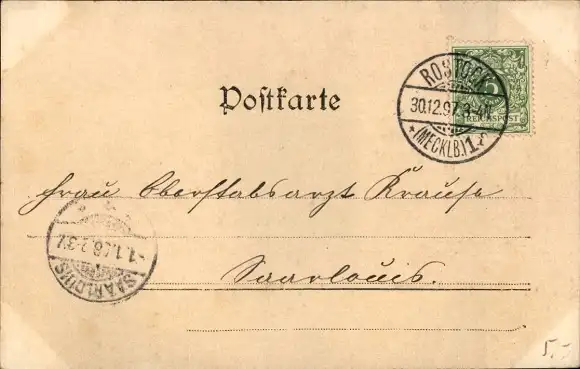 Postkarte
ROSTOCK
30.12.97. 3-4N
(MECKLB.) 1
5
REICHSPOST
Frau Oberstabsarzt Krause
Saarlouis.
SAARLOUIS
1.1.98. 2-3V
5.-